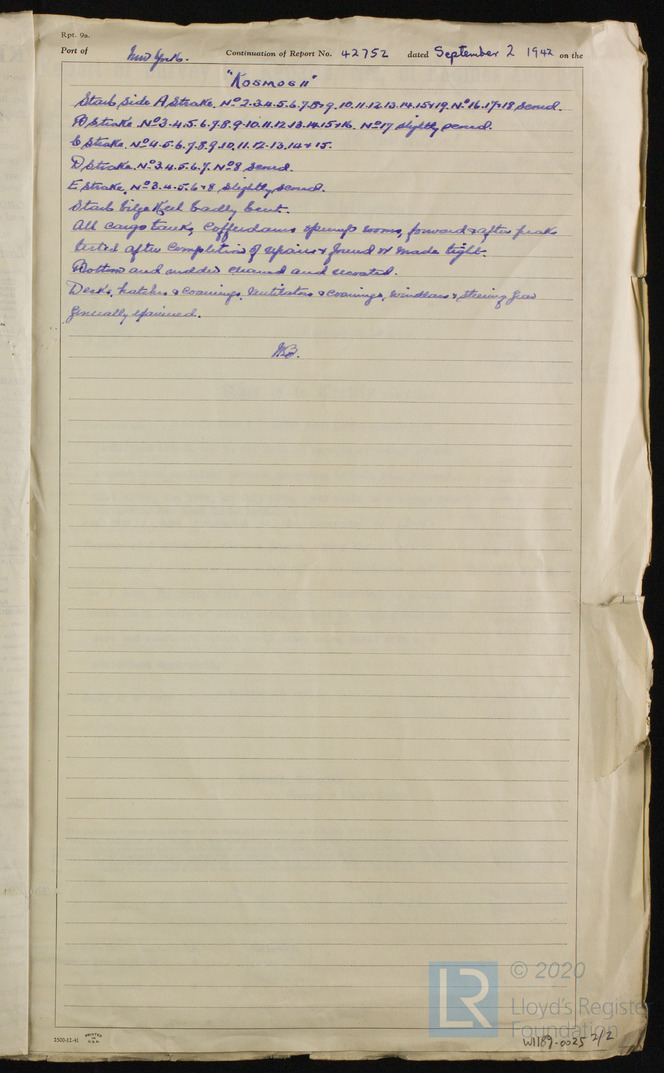 Rpt. 9a.
Port of New York. Continuation of Report No. 42752 dated September 2 1942 on the
"Kosmos II"
Starb side A Strake. Nº 2.3.4.5.6.7.8+9.10.11.12.13.14.15+19. Nº 16.17+18 scored.
B Strake Nº 3.4.5.6.7.8.9.10.11.12.13.14.15+16. Nº 17 slightly scored.
C Strake. Nº 4.5.6.7.8.9.10.11.12.13.14+15.
D Strake. Nº 3.4.5.6.7. Nº 8 scored.
E Strake, Nº 3.4.5.6+8 slightly scored.
Starb bilge keel badly bent.
All cargo tanks, cofferdams & pump rooms, forward & after peaks
tested after completion of repairs & found or made tight.
Bottom and rudder cleaned and coated.
Decks, hatches & coamings, ventilators & coamings, windlass & steering gear
generally examined.
2500-12-41
PRINTED
IN
U.S.A.
LR
© 2020
Lloyd's Register
Foundation
W1189-0025 2/2